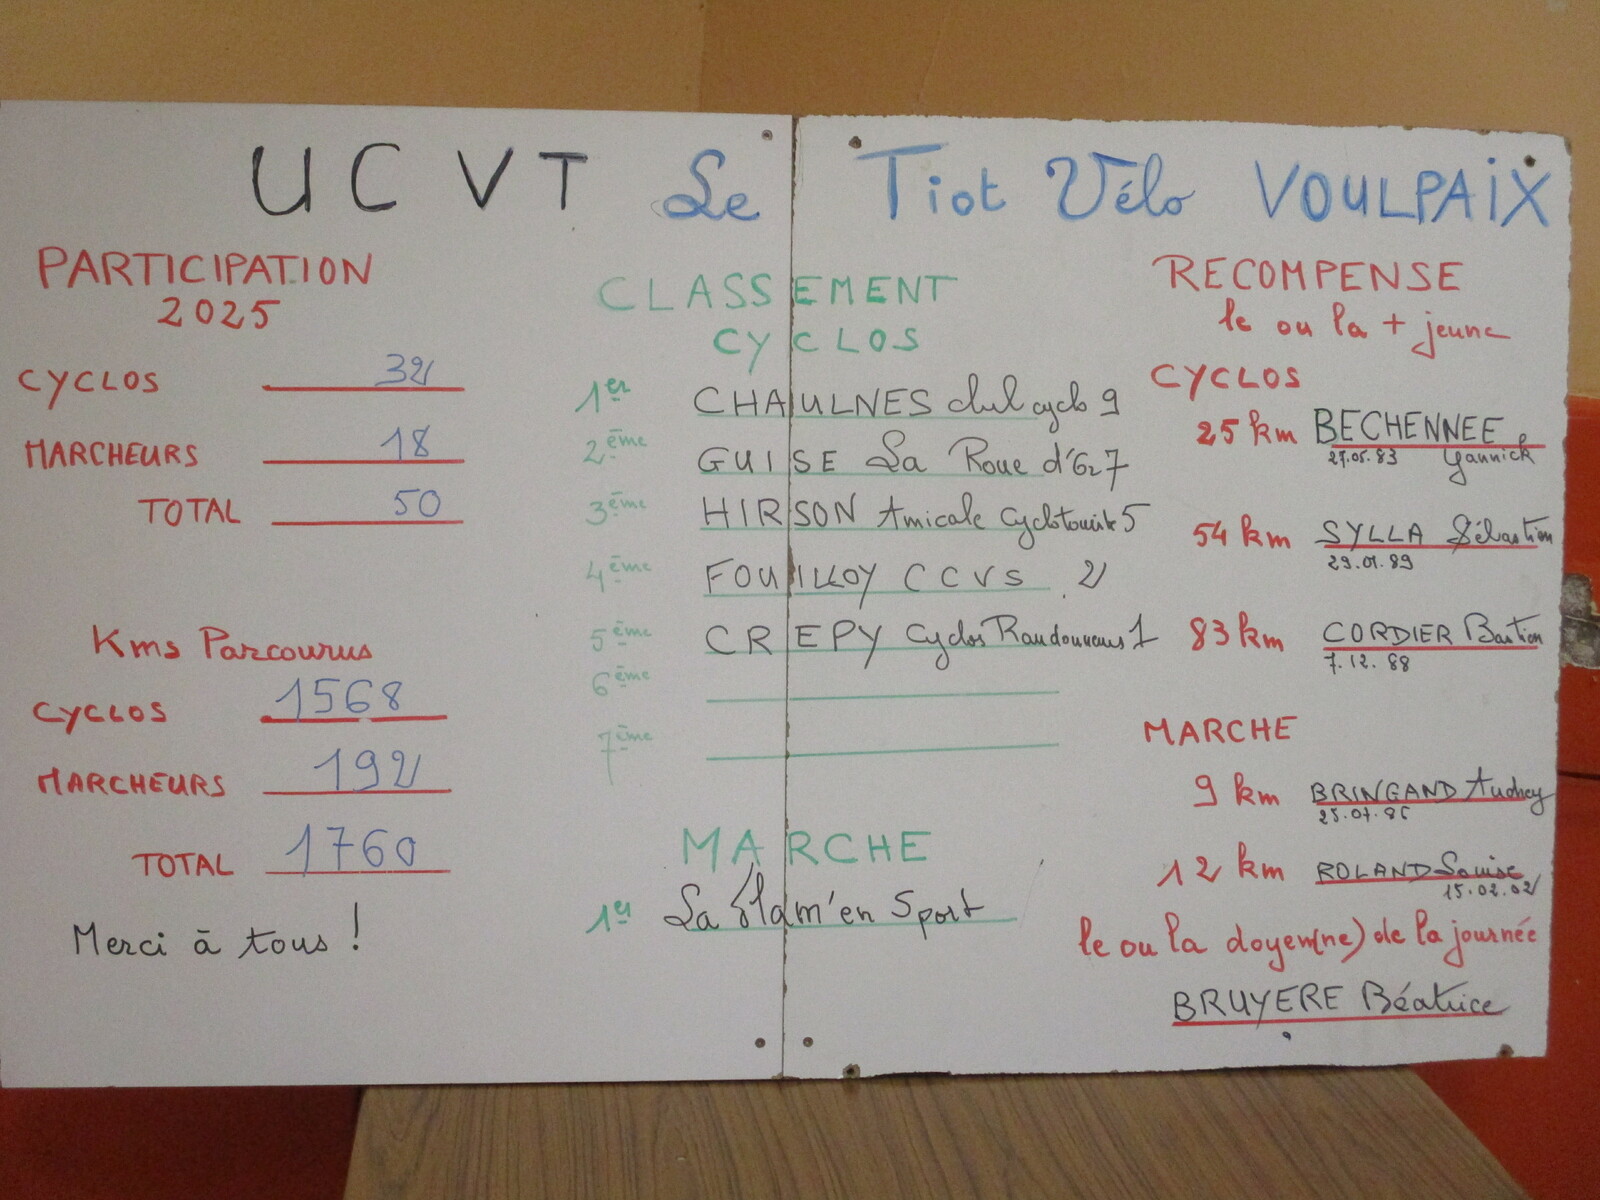 UCVT Le Tiot Vélo VOULPAIX
PARTICIPATION
2025
CYCLOS 32
MARCHEURS 18
TOTAL 50
Kms Parcourus
CYCLOS 1568
MARCHEURS 192
TOTAL 1760
Merci à tous !
CLASSEMENT
CYCLOS
1er CHAULNES club cyclo 9
2ème GUISE La Roue d'Or 7
3ème HIRSON Amicale Cyclotouriste 5
4ème FOUILLOY CCVS 2
5ème CREPY Cyclos Randonneurs 1
6ème
7ème
MARCHE
1er La Flam'en Sport
RECOMPENSE
le ou la + jeune
CYCLOS
25 km BECHENNEE
27.05.83 Yannick
54 km SYLLA Sébastien
29.01.89
83 km CORDIER Bastien
7.12.88
MARCHE
9 km BRINGAND Audrey
12 km ROLAND Louise
15.02.02
le ou la doyen(ne) de la journée
BRUYERE Béatrice